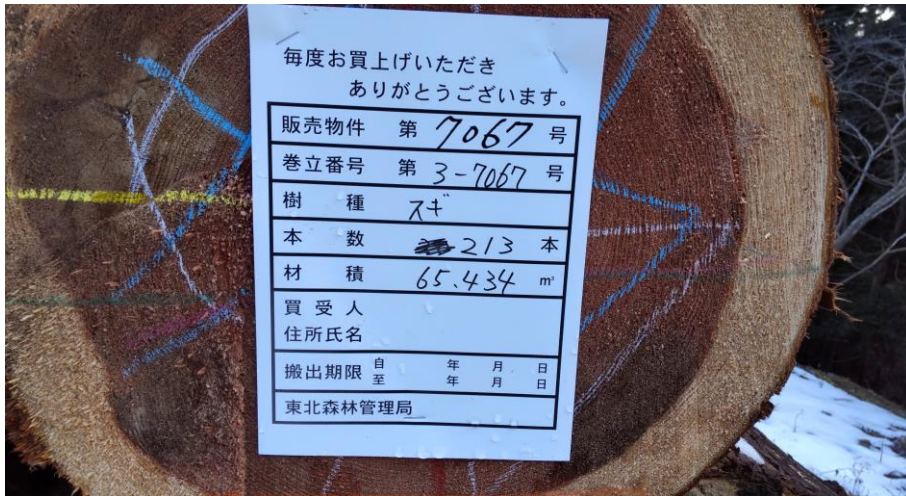 毎度お買上げいただき
ありがとうございます。
販売物件 第 7067 号
巻立番号 第 3-7067 号
樹種 スギ
本数 213 本
材積 65.434 m³
買受人
住所氏名
搬出期限 自 年 月 日
至 年 月 日
東北森林管理局